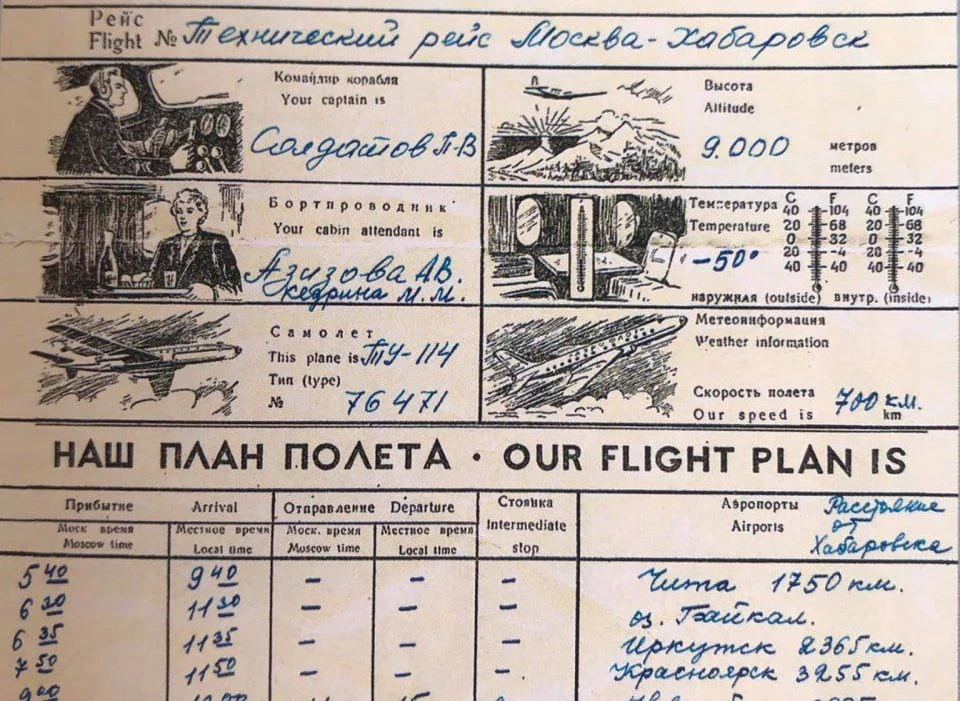 Рейс
Flight № Технический рейс Москва-Хабаровск
Командир корабля
Your captain is
Солдатов П-В
Высота
Altitude
9.000 метров
meters
Бортпроводник
Your cabin attendant is
Азизова А.В.
Кедрина М.М.
Температура C F C F
Temperature 40 104 40 104
20 68 20 68
0 32 0 32
20 -4 20 -4
40 40 40 40
-50°
наружная (outside) внутр. (inside)
Самолет
This plane is ТУ-114
Тип (type)
№ 76471
Метеоинформация
Weather information
Скорость полета 700 км.
Our speed is km
НАШ ПЛАН ПОЛЕТА · OUR FLIGHT PLAN IS
Прибытие Arrival Отправление Départure Стоянка Аэропорты Расстояние
Intermediate Airports от
stop Хабаровска
Моск время Местное время Моск. время Местное время
Moscow time Local time Moscow time Local time
5 40 9 40 – – – Чита 1750 км.
6 30 11 30 – – – оз. Байкал.
6 35 11 35 – – – Иркутск 2365 км.
7 50 11 50 – – – Красноярск 3255 км.